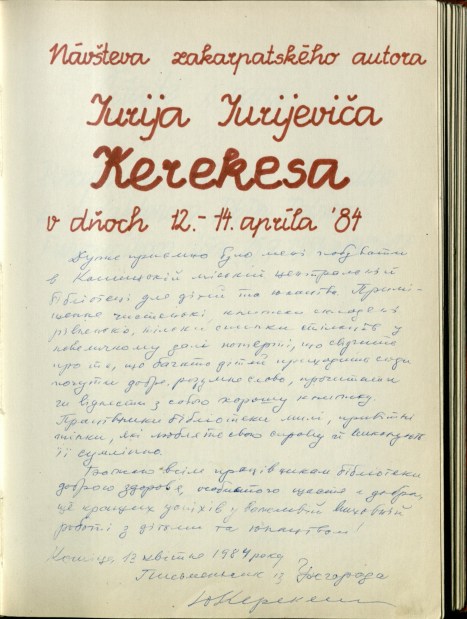 Návšteva zakarpatského autora
Jurija Jurijeviča
Kerekesa
v dňoch 12.-14. apríla '84
Дуже приємно було мені побувати
в Кошицькій міській центральній
бібліотеці для дітей та юнацтва. Примі-
щення чистенькі, книжки складені
рівненько, кілька
читальному залі потерті, що свідчить
про те, що багато дітей приходить сюди
почути добре, розумне слово, прочитати
чи віднести з собою хорошу книжку.
Працівники бібліотеки милі, привітні
жінки, які люблять свою справу й виконують
її сумлінно.
Бажаю всім працівникам бібліотеки
доброго здоров'я, особистого щастя і добра,
ще кращих успіхів у важливій виховній
роботі з дітьми та юнацтвом!
Кошице, 12 квітня 1984 року
Письменник із Ужгорода
Ю Керекеш